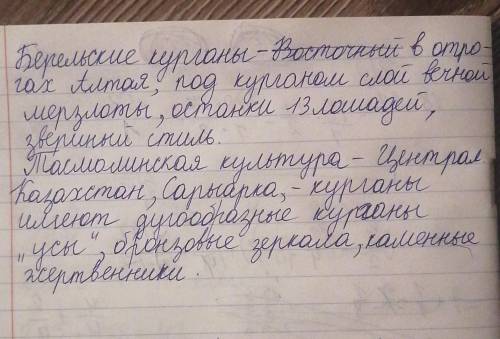 Берельские курганы - Восточный в отро-
гах Алтая, под курганом слой вечной
мерзлоты, останки 13 лошадей,
звериный стиль.
Тасмолинская культура - Централ
Казахстан, Сарыарка, - курганы
имеют дугообразные курганы
"усы", бронзовые зеркала, каменные
жертвенники.